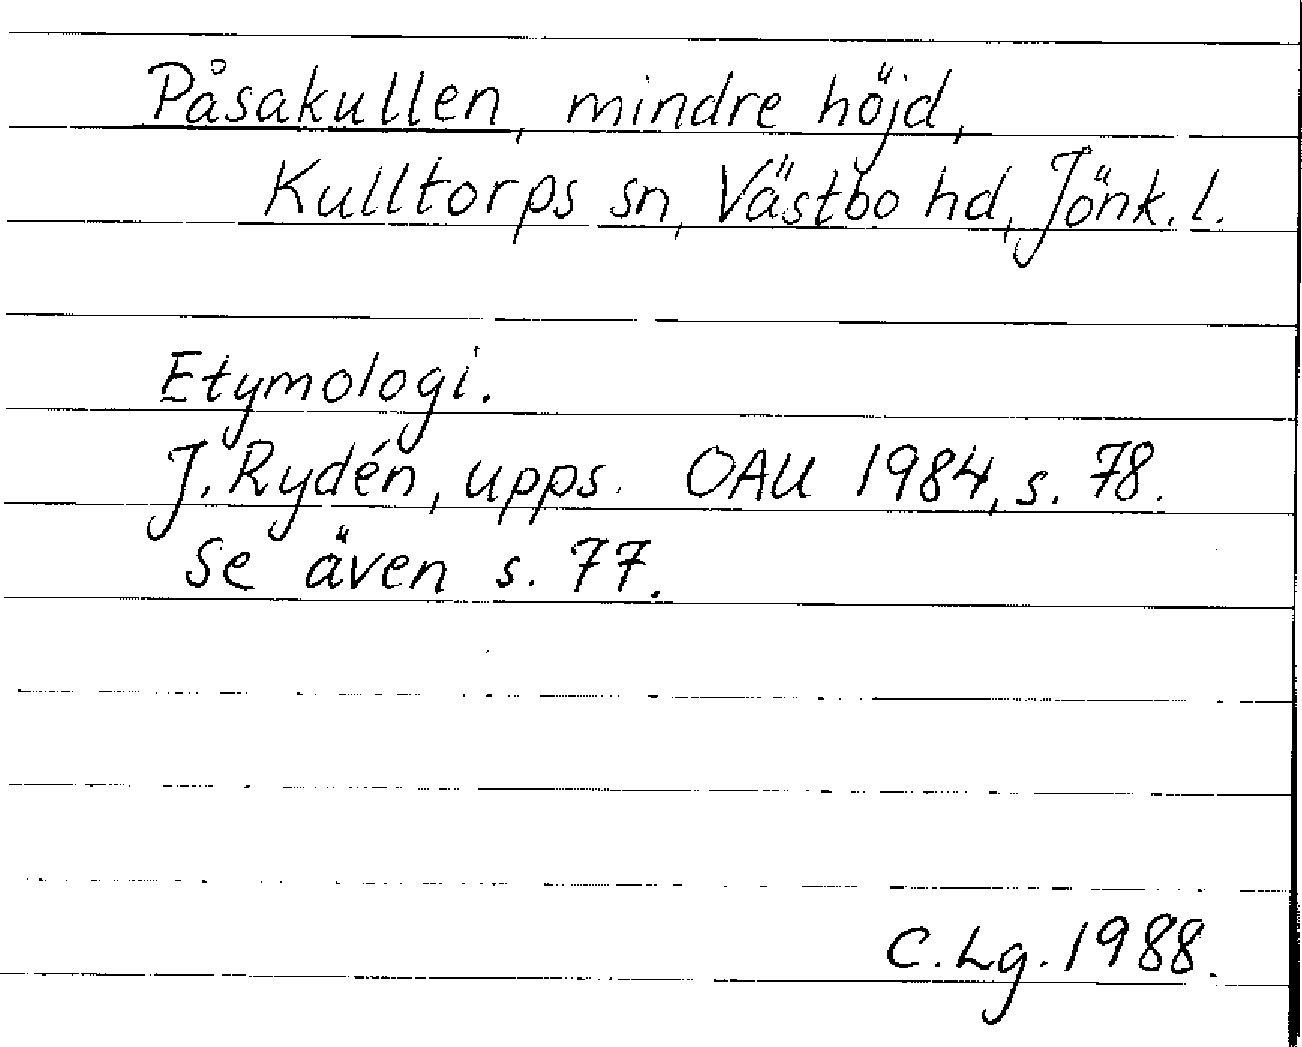 Påsakullen, mindre höjd,
Kulltorps sn, Västbo hd, Jönk. l.
Etymologi.
J. Rydén, upps. OAU 1984, s. 78.
Se även s. 77.
C. Lg. 1988.